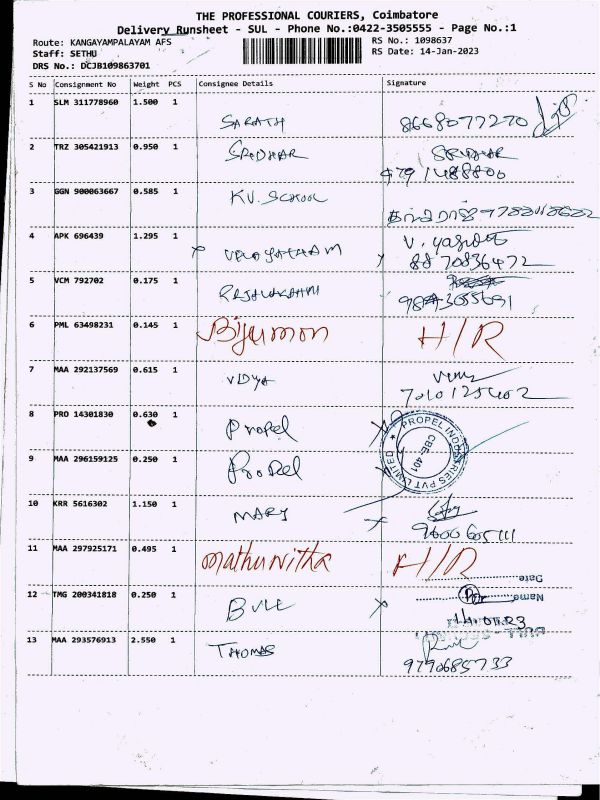 THE PROFESSIONAL COURIERS, Coimbatore
Delivery Runsheet - SUL - Phone No.:0422-3505555 - Page No.:1
Route: KANGAYAMPALAYAM AFS
RS No.: 1098637
Staff: SETHU
RS Date: 14-Jan-2023
DRS No.: DCJB109863701
S No Consignment No Weight PCS Consignee Details Signature
1 SLM 311778960 1.500 1 SARATH 8668077270
2 TRZ 305421913 0.950 1 SRIDHAR SRIDHAR
9791488800
3 GGN 900063667 0.585 1 KV. SCHOOL
4 APK 696439 1.295 1 V.
8870836472
5 VCM 792702 0.175 1 RAJALAKSHMI
6 PML 63498231 0.145 1 Bijumon H/R
7 MAA 292137569 0.615 1 VIDYA
7010125402
8 PRO 14301830 0.630 1 Propel
PROPEL INDUSTRIES PVT LIMITED
CBE-401
9 MAA 296159125 0.250 1 Propel
10 KRR 5616302 1.150 1 MARY
9600605111
11 MAA 297925171 0.495 1 Mathunitha H/R
Date
12 TMG 200341818 0.250 1 BULL
Name
13 MAA 293576913 2.550 1 THOMAS
9790685733